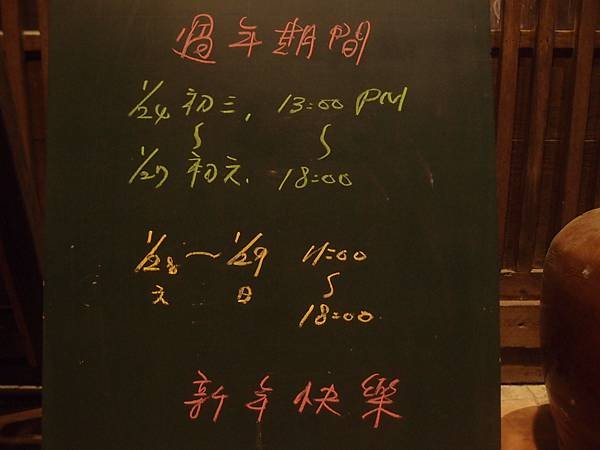 過年期間
1/24 初三. 13:00 PM
~ ~
1/27 初五. 18:00
1/28 ~ 1/29 11:00
六 日 ~
18:00
新年快樂